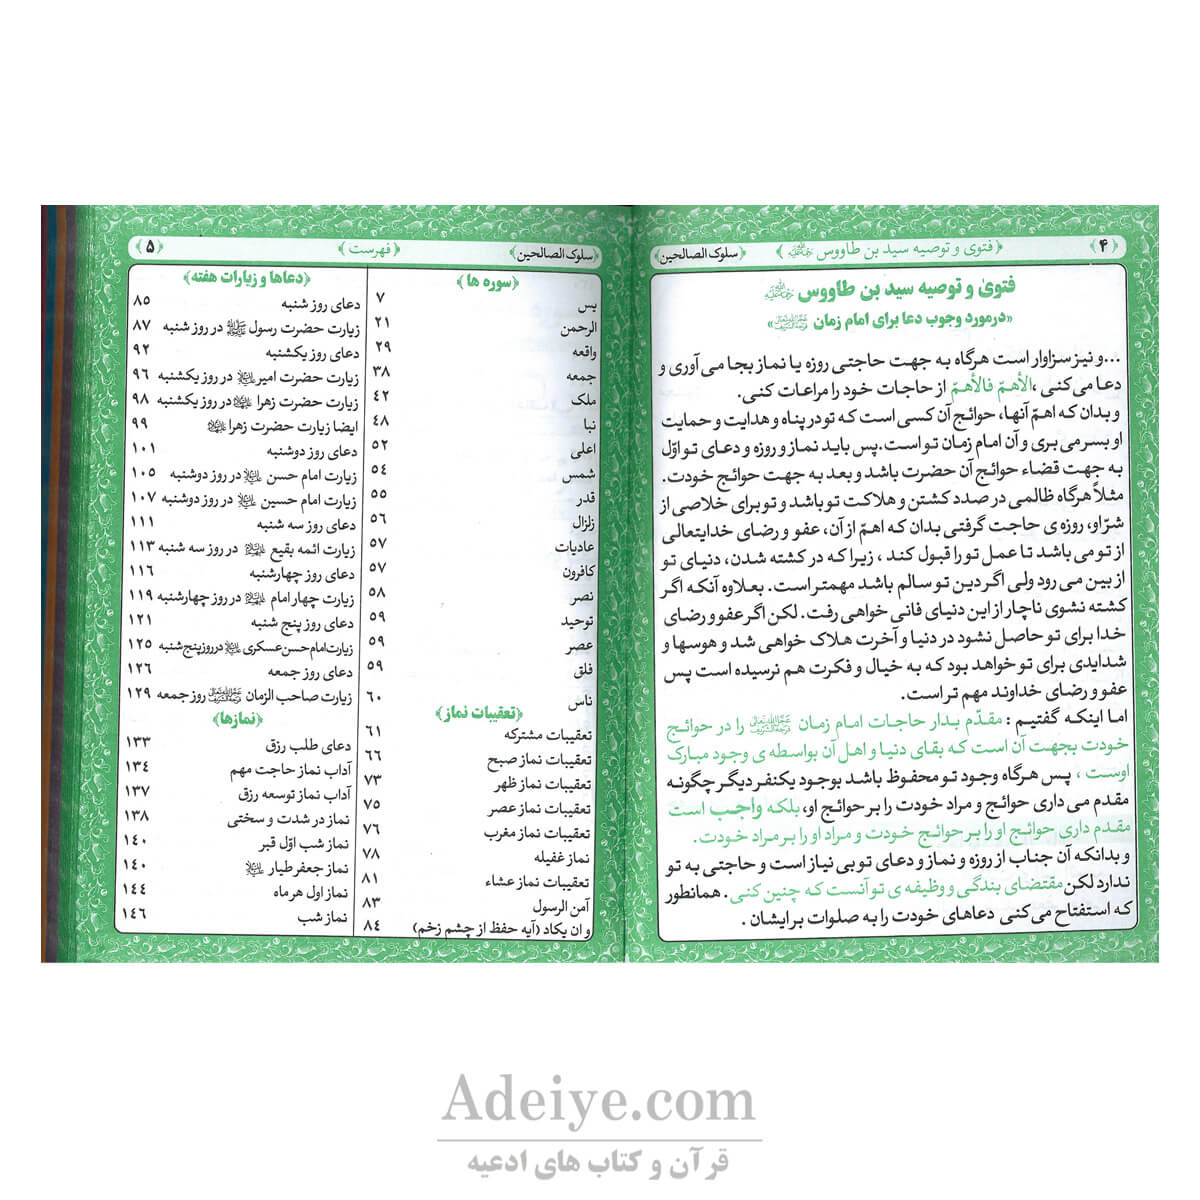 ﴿۴﴾
﴿فتوی و توصیه سید بن طاووس﴾
﴿سلوک الصالحین﴾
فتویٰ و توصیه سید بن طاووس
«درمورد وجوب دعا برای امام زمان»
...و نیز سزاوار است هرگاه به جهت حاجتی روزه یا نماز بجا می آوری و
دعا می کنی ،الأهمّ فالأهمّ از حاجات خود را مراعات کنی.
و بدان که اهمّ آنها، حوائج آن کسی است که تو در پناه و هدایت و حمایت
او بسر می بری و آن امام زمان تو است.پس باید نماز و روزه و دعای تو اوّل
به جهت قضاء حوائج آن حضرت باشد و بعد به جهت حوائج خودت.
مثلاً هرگاه ظالمی در صدد کشتن و هلاکت تو باشد و تو برای خلاصی از
شرّ او، روزه ی حاجت گرفتی بدان که اهمّ از آن، عفو و رضای خدایتعالی
از تو می باشد تا عمل تو را قبول کند ، زیرا که در کشته شدن، دنیای تو
از بین می رود ولی اگر دین تو سالم باشد مهمتر است. بعلاوه آنکه اگر
کشته نشوی ناچار از این دنیای فانی خواهی رفت. لکن اگر عفو و رضای
خدا برای تو حاصل نشود در دنیا و آخرت هلاک خواهی شد و هوسها و
شدایدی برای تو خواهد بود که به خیال و فکرت هم نرسیده است پس
عفو و رضای خداوند مهم تر است.
اما اینکه گفتیم : مقدّم بدار حاجات امام زمان را در حوائج
خودت بجهت آن است که بقای دنیا و اهل آن بواسطه ی وجود مبارک
اوست ، پس هرگاه وجود تو محفوظ باشد بوجود یکنفر دیگر چگونه
مقدم می داری حوائج و مراد خودت را بر حوائج او، بلکه واجب است
مقدم داری حوائج او را بر حوائج خودت و مراد او را بر مراد خودت.
و بدانکه آن جناب از روزه و نماز و دعای تو بی نیاز است و حاجتی به تو
ندارد لکن مقتضای بندگی و وظیفه ی تو آنست که چنین کنی . همانطور
که استفتاح می کنی دعاهای خودت را به صلوات بر ایشان .
﴿سلوک الصالحین﴾
﴿فهرست﴾
﴿۵﴾
﴿سوره ها﴾
یس ۷
الرحمن ۲۱
واقعه ۲۹
جمعه ۳۸
ملک ۴۲
نبا ۴۸
اعلی ۵۲
شمس ۵۴
قدر ۵۵
زلزال ۵۶
عادیات ۵۷
کافرون ۵۷
نصر ۵۸
توحید ۵۹
عصر ۵۹
فلق ۵۹
ناس ۶۰
﴿تعقیبات نماز﴾
تعقیبات مشترکه ۶۱
تعقیبات نماز صبح ۶۶
تعقیبات نماز ظهر ۷۳
تعقیبات نماز عصر ۷۵
تعقیبات نماز مغرب ۷۶
نماز غفیله ۷۸
تعقیبات نماز عشاء ۸۱
آمن الرسول ۸۳
و ان یکاد (آیه حفظ از چشم زخم) ۸۴
﴿دعاها و زیارات هفته﴾
دعای روز شنبه ۸۵
زیارت حضرت رسول در روز شنبه ۸۷
دعای روز یکشنبه ۹۲
زیارت حضرت امیر در روز یکشنبه ۹۶
زیارت حضرت زهرا در روز یکشنبه ۹۸
ایضا زیارت حضرت زهرا ۹۹
دعای روز دوشنبه ۱۰۱
زیارت امام حسن در روز دوشنبه ۱۰۵
زیارت امام حسین در روز دوشنبه ۱۰۷
دعای روز سه شنبه ۱۱۱
زیارت ائمه بقیع در روز سه شنبه ۱۱۳
دعای روز چهارشنبه ۱۱۶
زیارت چهار امام در روز چهارشنبه ۱۱۹
دعای روز پنج شنبه ۱۲۱
زیارت امام حسن عسکری در روز پنج شنبه ۱۲۵
دعای روز جمعه ۱۲۶
زیارت صاحب الزمان روز جمعه ۱۲۹
﴿نمازها﴾
دعای طلب رزق ۱۳۳
آداب نماز حاجت مهم ۱۳۴
آداب نماز توسعه رزق ۱۳۷
نماز در شدت و سختی ۱۳۸
نماز شب اوّل قبر ۱۴۰
نماز جعفر طیار ۱۴۰
نماز اول هر ماه ۱۴۴
نماز شب ۱۴۶
Adeiye.com
قرآن و کتاب های ادعیه